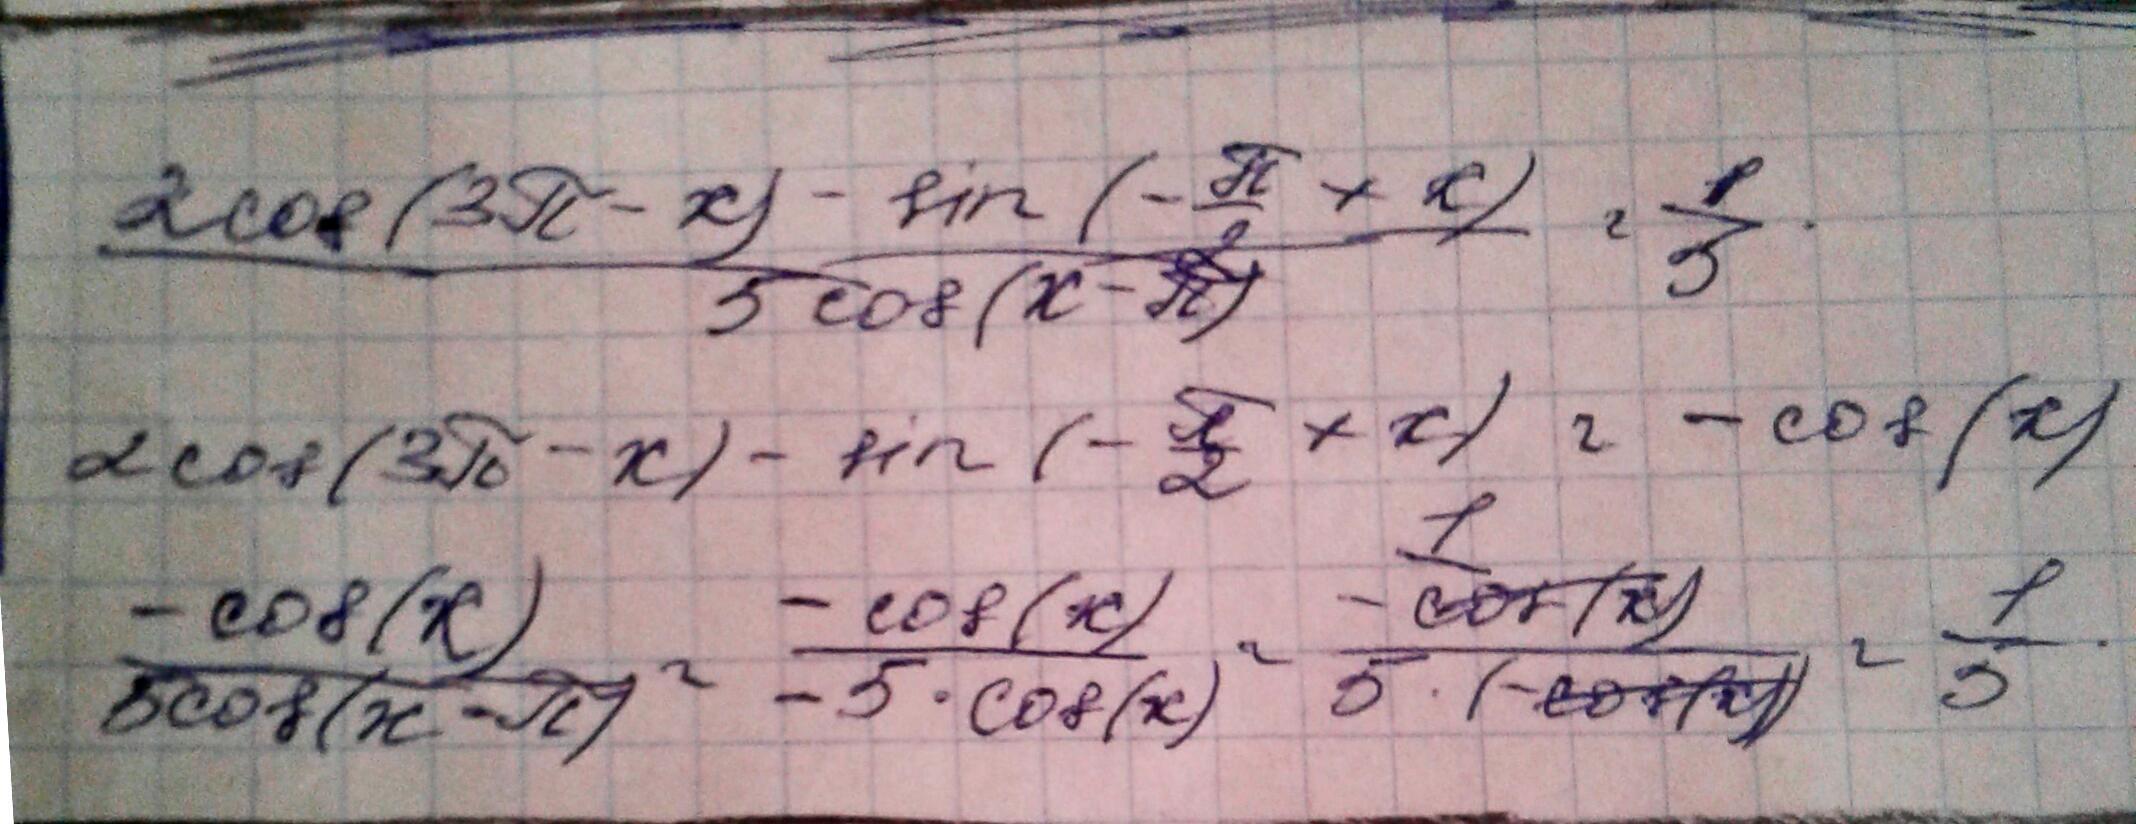 (2cos(3π - x) - sin(-π/2 + x)) / (5cos(x - π)) = 1/5.
2cos(3π - x) - sin(-π/2 + x) = -cos(x)
-cos(x) / 5cos(x - π) = -cos(x) / -5·cos(x) = -cos(x) / 5·(-cos(x)) = 1/5.